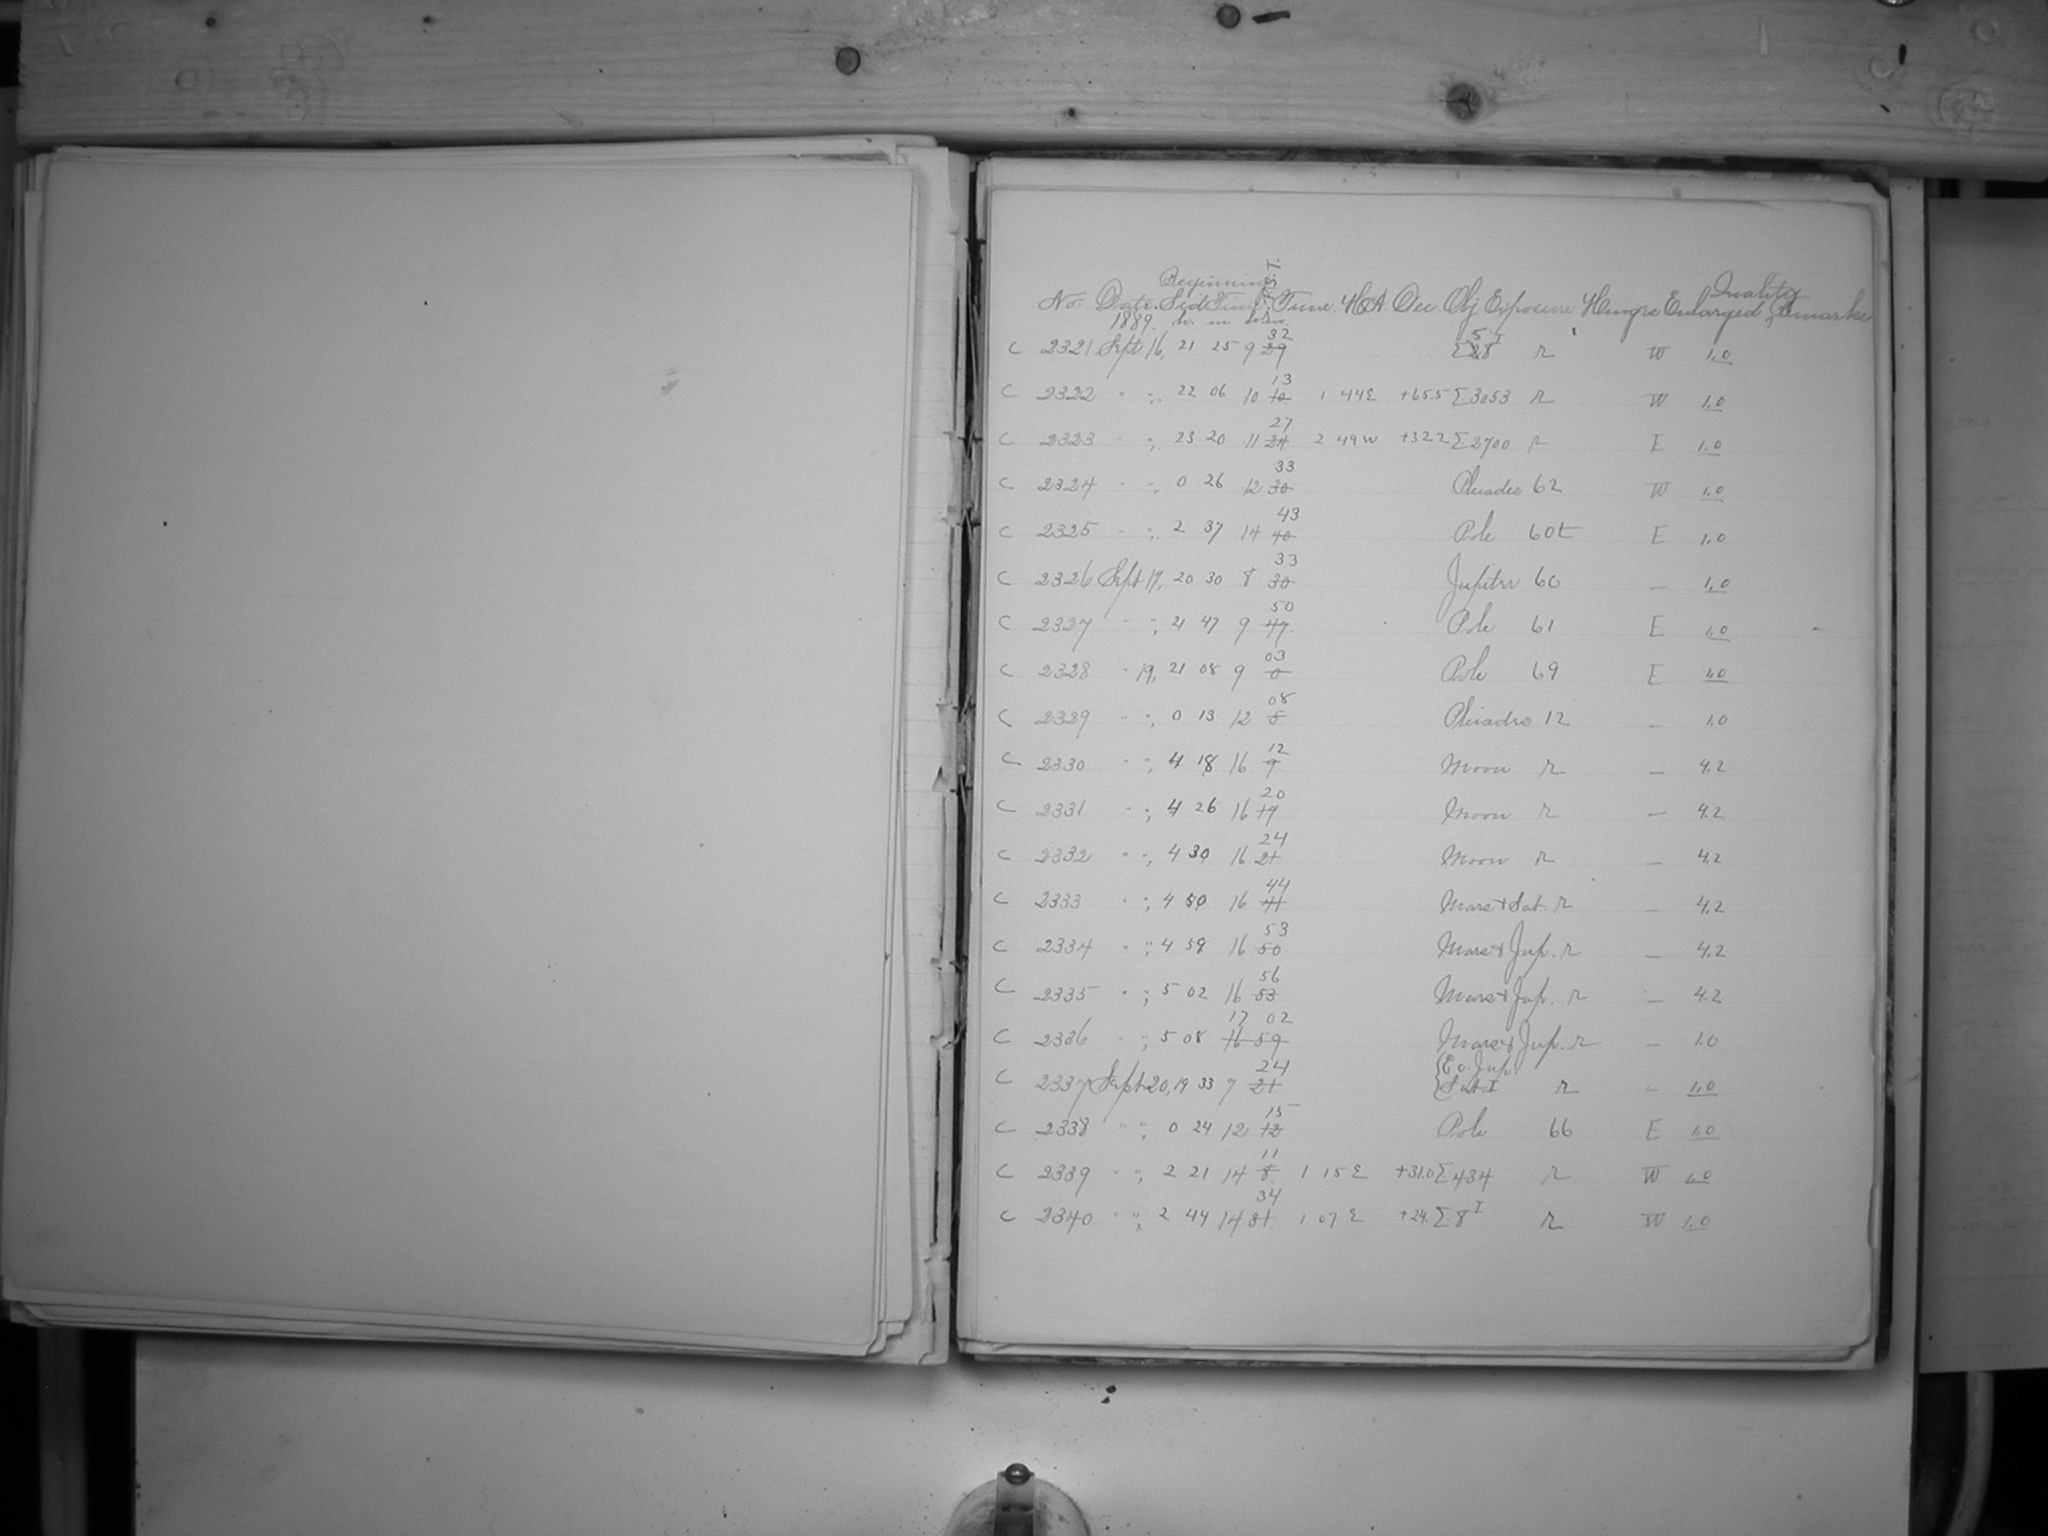 Beginning
Quality
No. Date. Sid Time Time. HA. Dec. Obj Exposure Hungs Enlarged Remarks
1889. h. m
32 5 I
C 2321 Sept 16, 21 25 9 29 Σ 28 r W 1.0
13
C 2322 " ", 22 06 10 10 1 44 E +65.5 Σ3053 r W 1.0
27
C 2323 " ", 23 20 11 24 2 49 W +32.2 Σ2700 r E 1.0
33
C 2324 " ", 0 26 12 30 Pleiades 62 W 1.0
43
C 2325 " ", 2 37 14 40 Pole 60t E 1.0
33
C 2326 Sept 17, 20 30 8 30 Jupiter 60 – 1.0
50
C 2327 " ", 21 47 9 47 Pole 61 E 1.0
03
C 2328 " 19, 21 08 9 0 Pole 69 E 1.0
08
C 2329 " ", 0 13 12 5 Pleiades 12 – 1.0
12
C 2330 " ", 4 18 16 9 Moon r – 4.2
20
C 2331 " ", 4 26 16 17 Moon r – 4.2
24
C 2332 " ", 4 30 16 21 Moon r – 4.2
44
C 2333 " ", 4 50 16 41 Mars + Sat. r – 4.2
53
C 2334 " ", 4 59 16 50 Mars + Jup. r – 4.2
56
C 2335 " ", 5 02 16 53 Mars + Jup. r – 4.2
17 02
C 2336 " ", 5 08 16 59 Mars + Jup. r – 1.0
24 Ec. Jup.
C 2337 Sept 20, 19 33 7 21 Sat I r – 1.0
15
C 2338 " ", 0 24 12 12 Pole 66 E 1.0
11
C 2339 " ", 2 21 14 8 1 15 E +31.0 Σ434 r W 1.0
34
C 2340 " ", 2 44 14 31 1 07 E +24. Σ8 I r W 1.0